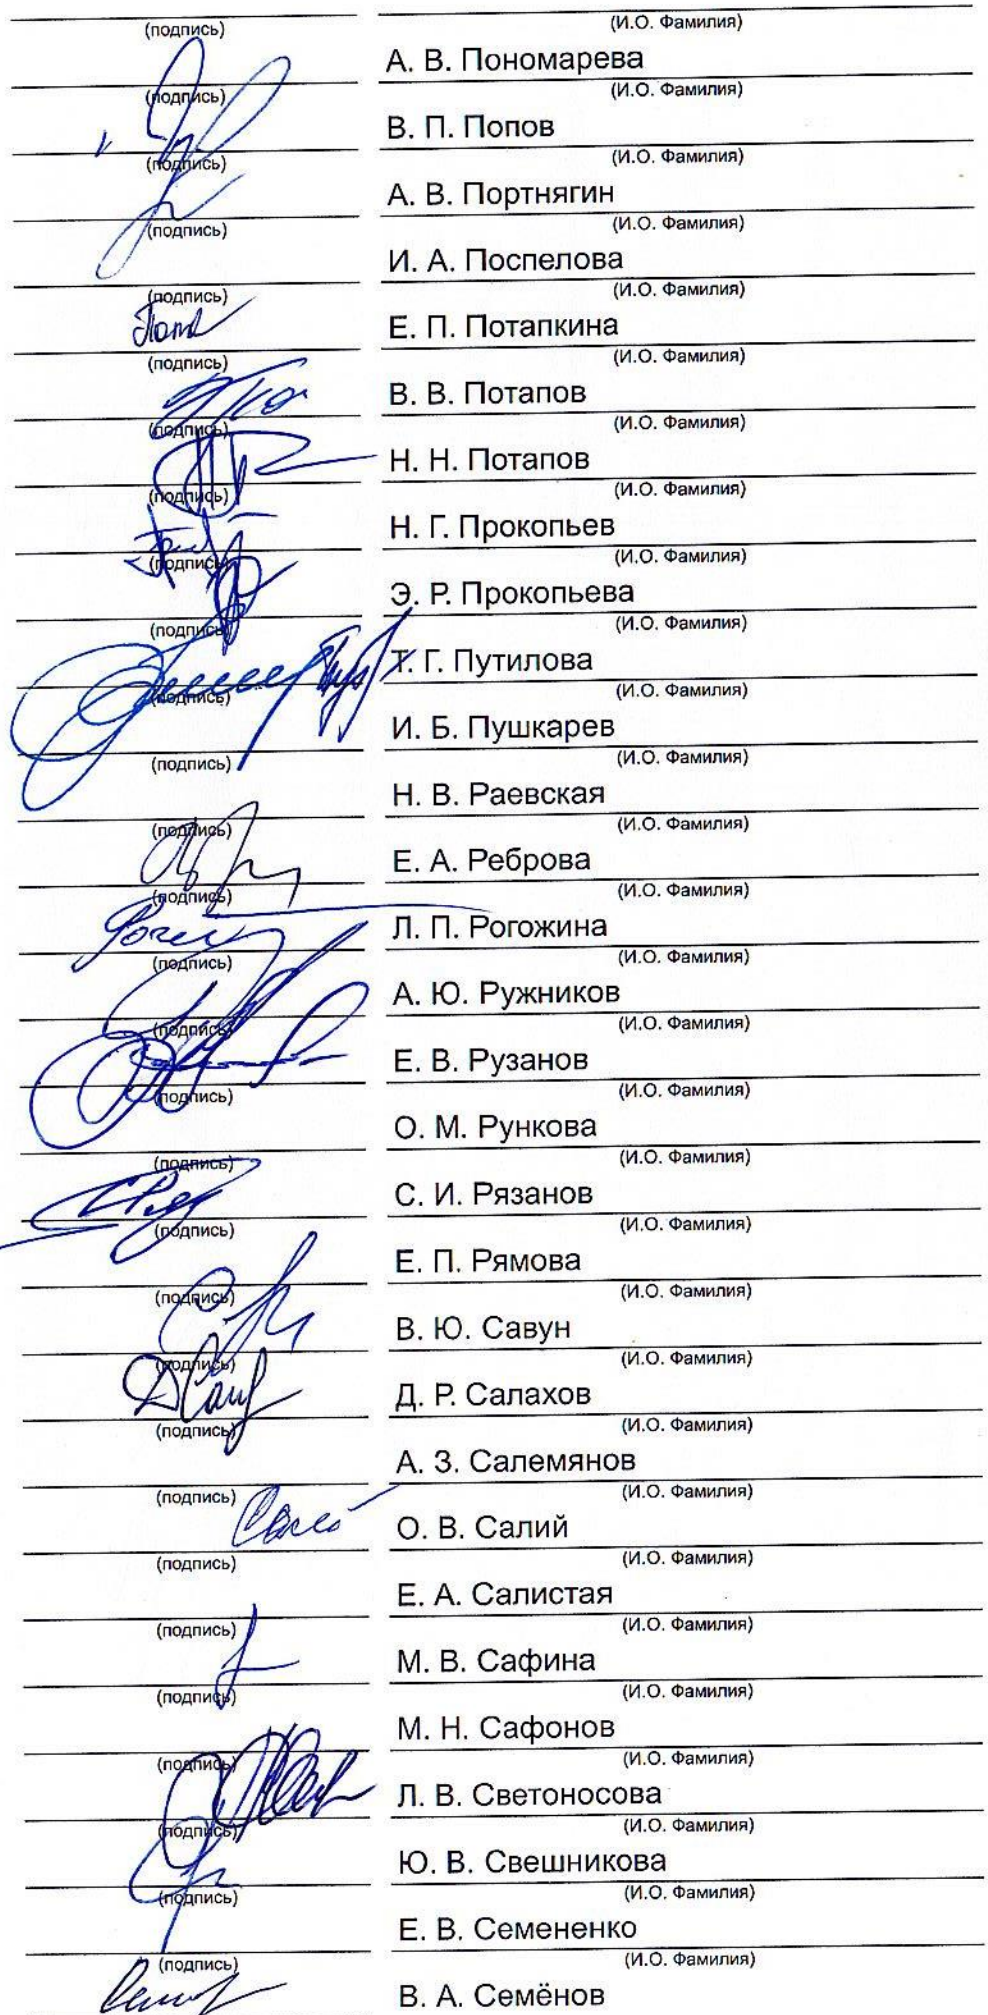 (подпись) (И.О. Фамилия)
А. В. Пономарева
(подпись) (И.О. Фамилия)
В. П. Попов
(подпись) (И.О. Фамилия)
А. В. Портнягин
(подпись) (И.О. Фамилия)
И. А. Поспелова
(подпись) (И.О. Фамилия)
Е. П. Потапкина
(подпись) (И.О. Фамилия)
В. В. Потапов
(подпись) (И.О. Фамилия)
Н. Н. Потапов
(подпись) (И.О. Фамилия)
Н. Г. Прокопьев
(подпись) (И.О. Фамилия)
Э. Р. Прокопьева
(подпись) (И.О. Фамилия)
Т. Г. Путилова
(подпись) (И.О. Фамилия)
И. Б. Пушкарев
(подпись) (И.О. Фамилия)
Н. В. Раевская
(подпись) (И.О. Фамилия)
Е. А. Реброва
(подпись) (И.О. Фамилия)
Л. П. Рогожина
(подпись) (И.О. Фамилия)
А. Ю. Ружников
(подпись) (И.О. Фамилия)
Е. В. Рузанов
(подпись) (И.О. Фамилия)
О. М. Рункова
(подпись) (И.О. Фамилия)
С. И. Рязанов
(подпись) (И.О. Фамилия)
Е. П. Рямова
(подпись) (И.О. Фамилия)
В. Ю. Савун
(подпись) (И.О. Фамилия)
Д. Р. Салахов
(подпись) (И.О. Фамилия)
А. З. Салемянов
(подпись) (И.О. Фамилия)
О. В. Салий
(подпись) (И.О. Фамилия)
Е. А. Салистая
(подпись) (И.О. Фамилия)
М. В. Сафина
(подпись) (И.О. Фамилия)
М. Н. Сафонов
(подпись) (И.О. Фамилия)
Л. В. Светоносова
(подпись) (И.О. Фамилия)
Ю. В. Свешникова
(подпись) (И.О. Фамилия)
Е. В. Семененко
(подпись) (И.О. Фамилия)
В. А. Семёнов